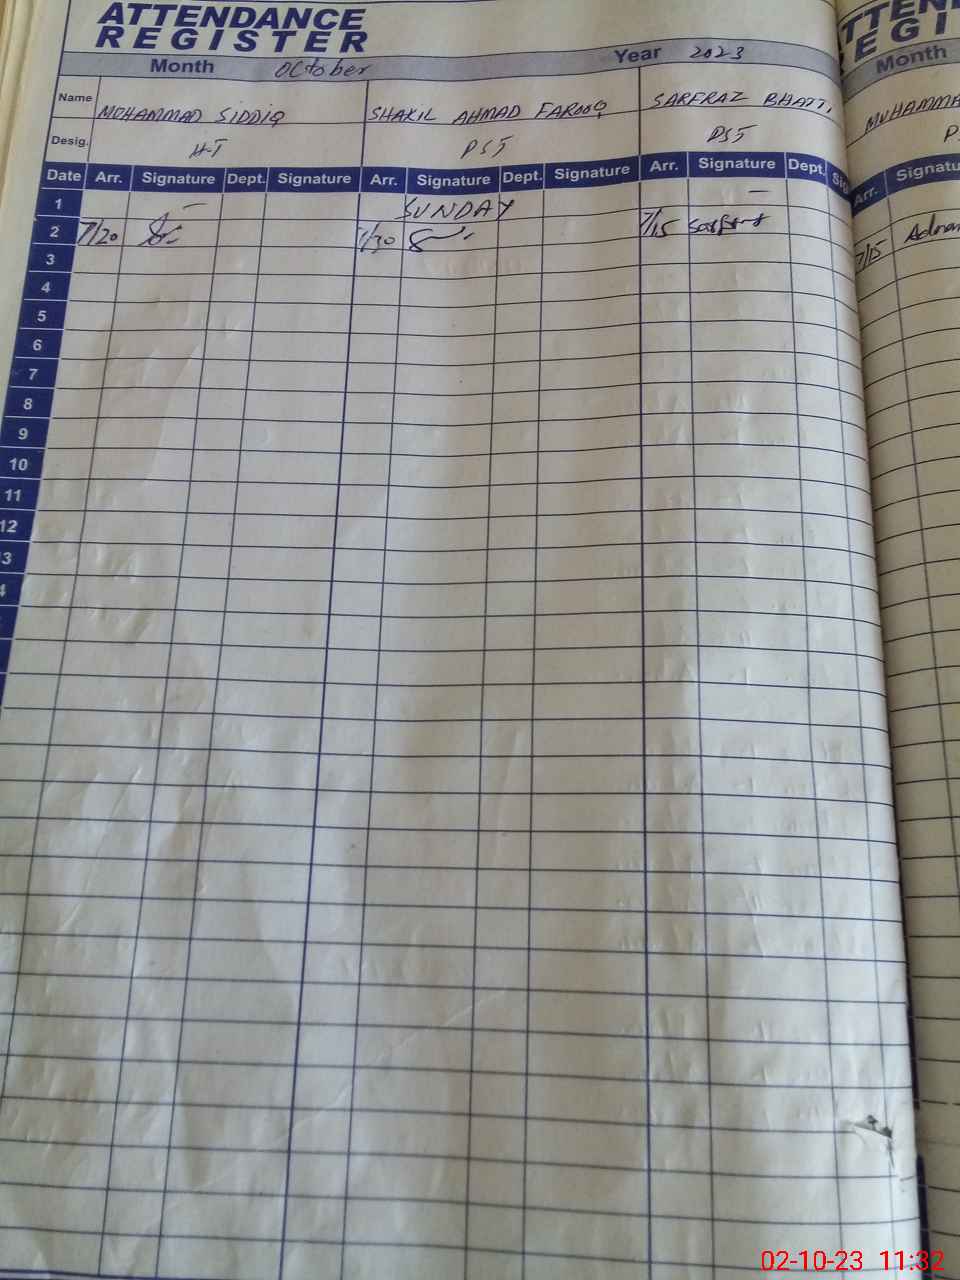 ATTENDANCE
REGISTER
Month October Year 2023
Name MUHAMMAD SIDDIQ SHAKIL AHMAD FAROOQ SARFRAZ BHATTI
Desig. H-T PST PST
Date Arr. Signature Dept. Signature Arr. Signature Dept. Signature Arr. Signature Dept.
1 — SUNDAY —
2 7/20 7/30 7/15 Sarfraz
3
4
5
6
7
8
9
10
11
12
TTEN
EGI
Month
MUHAMMA
P
Arr. Signatu
7/15 Adnan
02-10-23 11:32